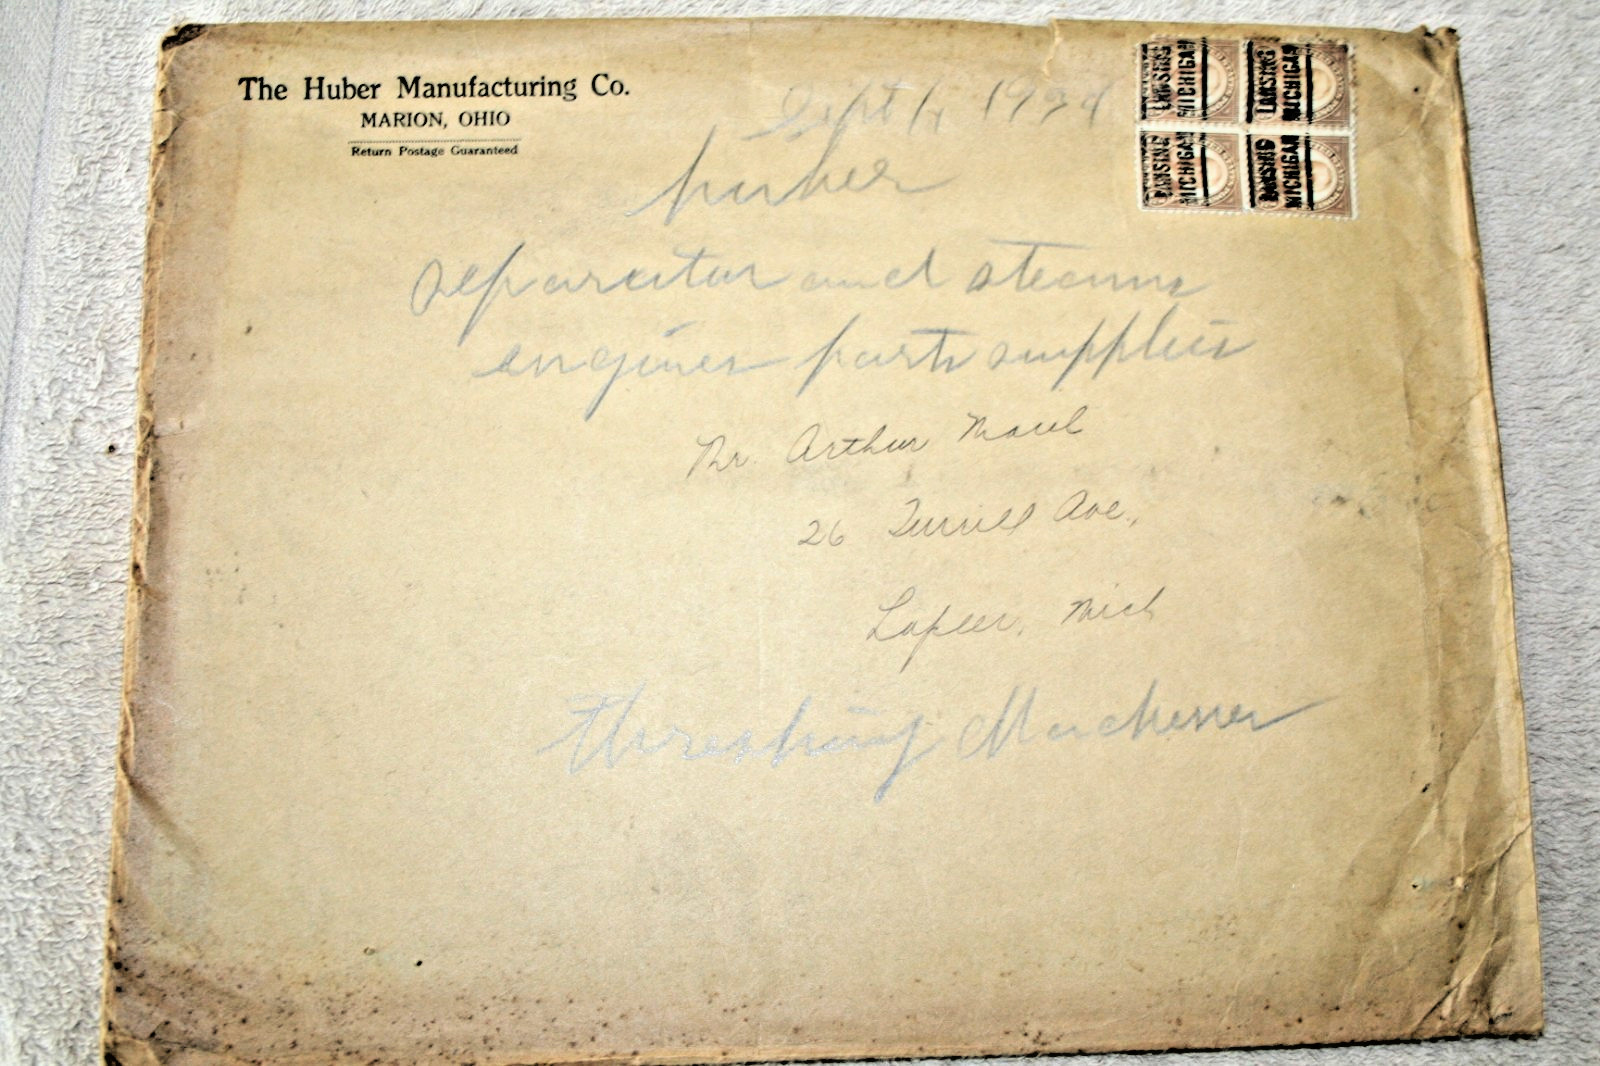 The Huber Manufacturing Co.
MARION, OHIO
Return Postage Guaranteed
LANSING MICHIGAN
LANSING MICHIGAN
LANSING MICHIGAN
LANSING MICHIGAN
Sept 1934
huber
separator and steam
engines parts supplies
Mr. Arthur
26 Turrill Ave.,
Lapeer, Mich
threshing